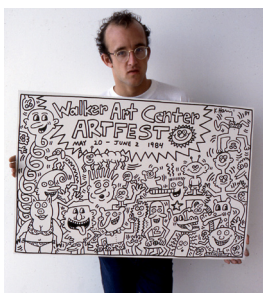 Walker Art Center
ARTFEST
MAY 20 - JUNE 2 1984